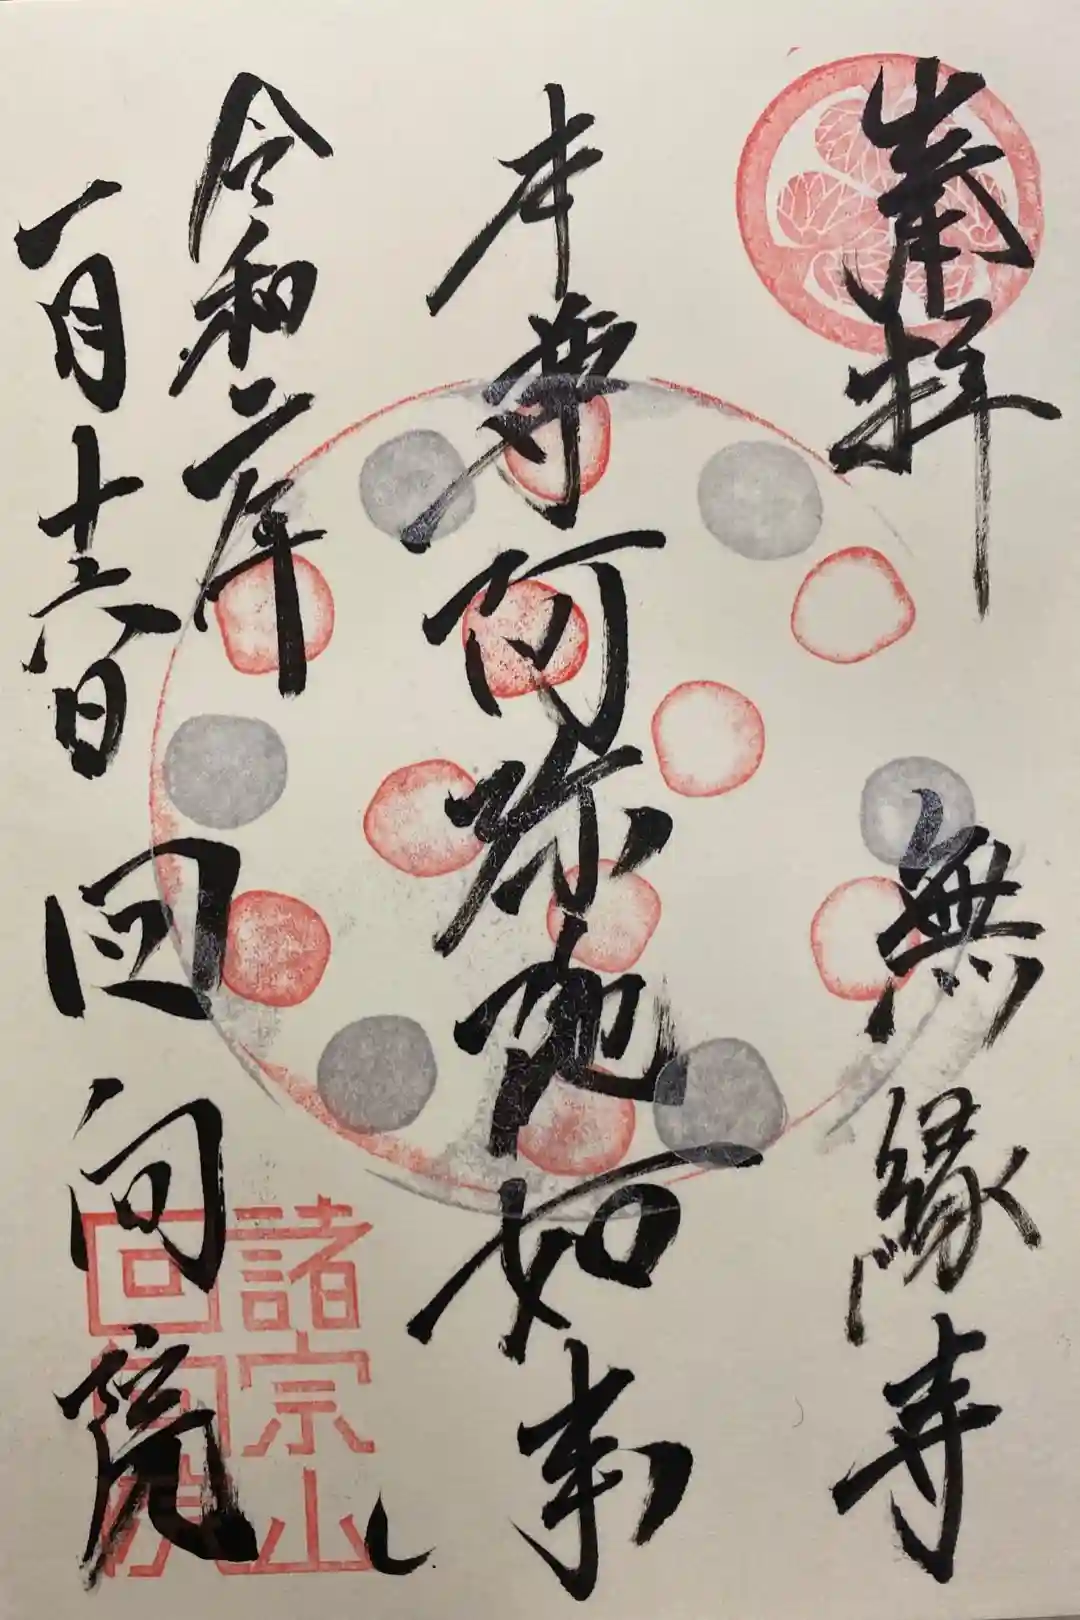 奉拝
無縁寺
本尊阿弥陀如来
令和二年
一月十六日
回向院
諸宗山
回向院